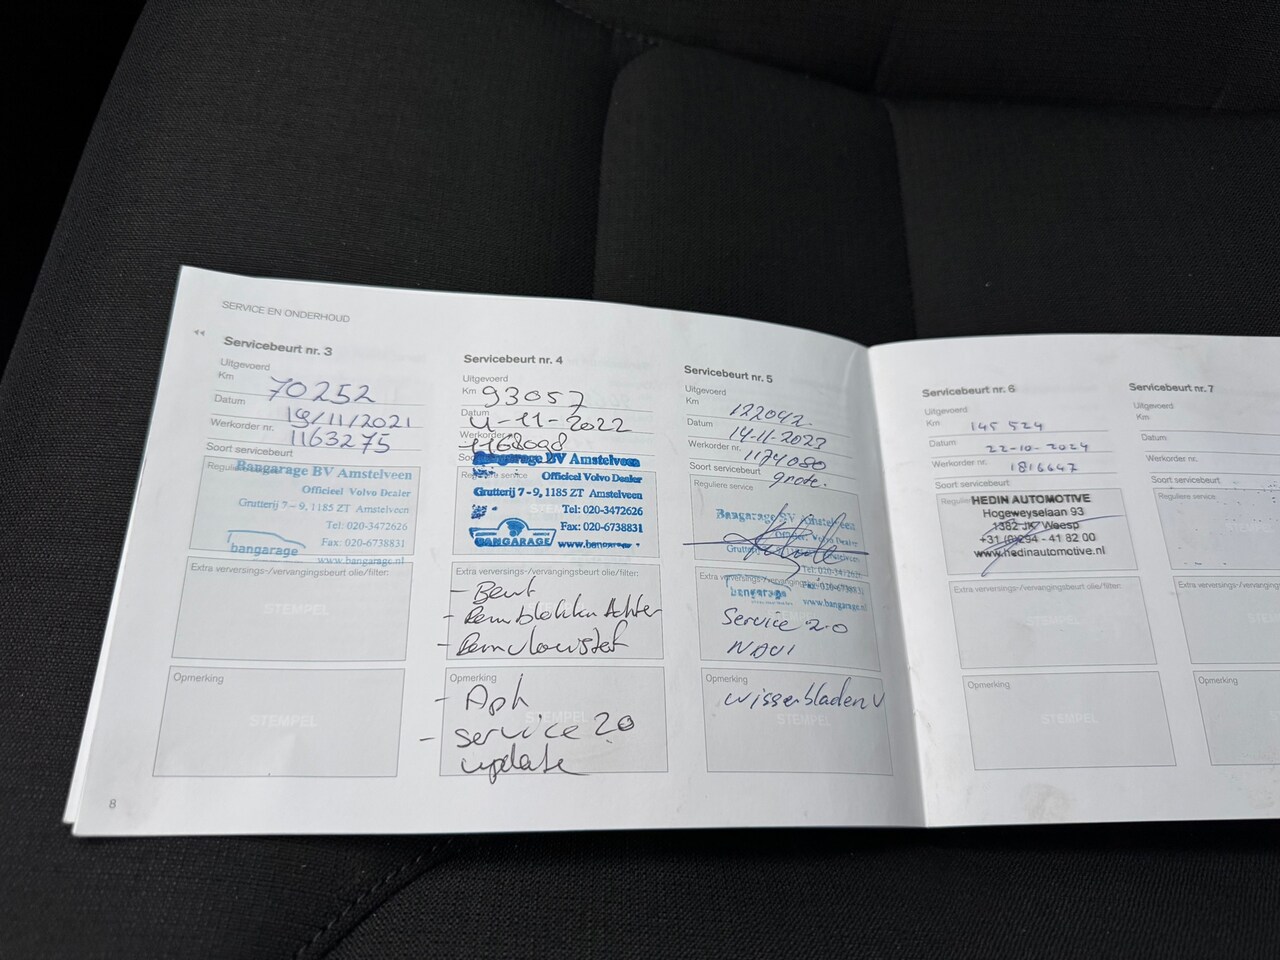 SERVICE EN ONDERHOUD
Servicebeurt nr. 3
Uitgevoerd
Km 70252
Datum 19/11/2021
Werkorder nr. 1163275
Soort servicebeurt
Reguliere
Bangarage BV Amstelveen
Officieel Volvo Dealer
Grutterij 7 - 9, 1185 ZT Amstelveen
Tel: 020-3472626
Fax: 020-6738831
bangarage
www.bangarage.nl
Extra verversings-/vervangingsbeurt olie/filter:
STEMPEL
Opmerking
STEMPEL
8
Servicebeurt nr. 4
Uitgevoerd
Km 93057
Datum 4-11-2022
Werkorder 1168098
Bangarage BV Amstelveen
Reguliere service
Officieel Volvo Dealer
Grutterij 7 - 9, 1185 ZT Amstelveen
Tel: 020-3472626
Fax: 020-6738831
BANGARAGE
www.bangarage
Extra verversings-/vervangingsbeurt olie/filter:
- Beurt
- Remblokken Achter
- Remvloeistof
Opmerking
- Apk
STEMPEL
- Service 2.0
update
Servicebeurt nr. 5
Uitgevoerd
Km 122042
Datum 14-11-2023
Werkorder nr. 1174080
Soort servicebeurt grote.
Reguliere service
Bangarage BV Amstelveen
Dealer
Tel: 020-3472626
Extra verversings-/vervangingsbeurt
Fax: 020-6738831
bangarage
www.bangarage.nl
Service 2.0
NAVI
Opmerking
wisserbladen V
STEMPEL
Servicebeurt nr. 6
Uitgevoerd
Km 145 524
Datum 22-10-2024
Werkorder nr. 1816647
Soort servicebeurt
Reguliere
HEDIN AUTOMOTIVE
Hogeweyselaan 93
1382 JK Weesp
+31 (0)294 - 41 82 00
www.hedinautomotive.nl
Extra verversings-/vervangingsbeurt olie/filter:
STEMPEL
Opmerking
STEMPEL
Servicebeurt nr. 7
Uitgevoerd
Km
Datum
Werkorder nr.
Soort servicebeurt
Reguliere service
Extra verversings-/vervangings
Opmerking